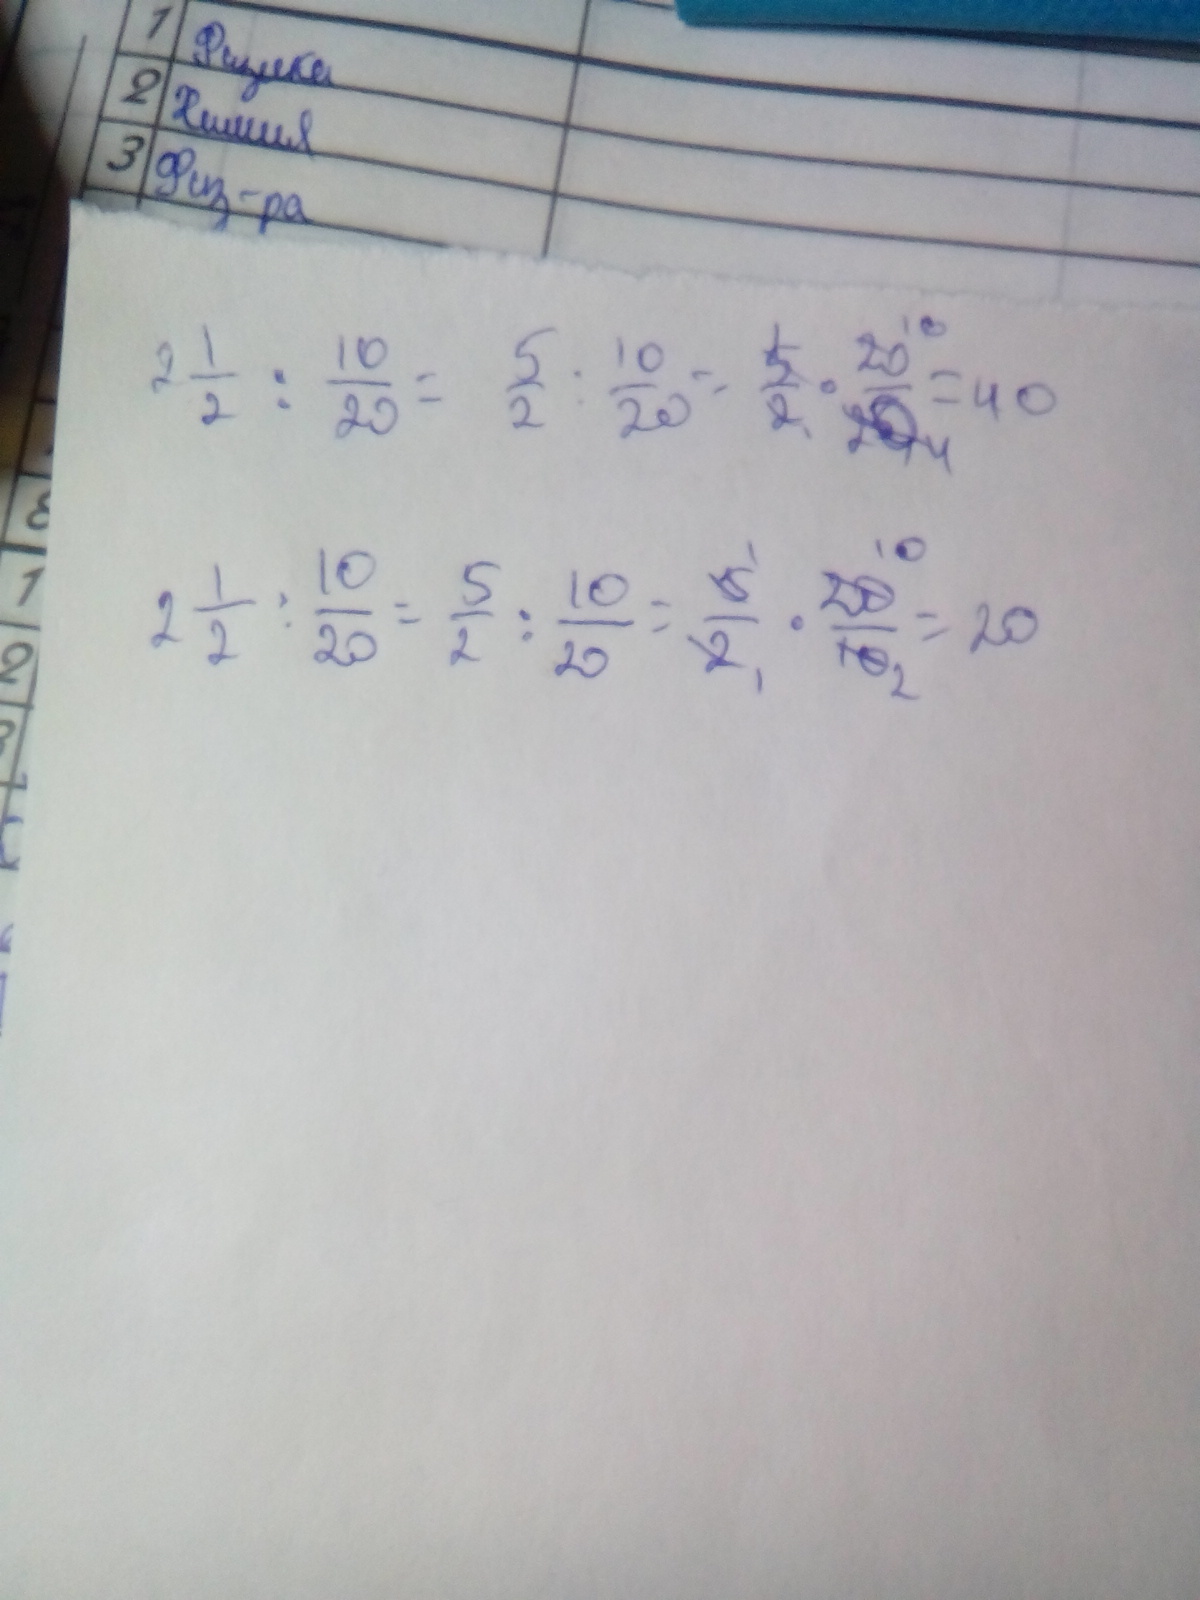 1 Физика
2 Химия
3 Физ-ра
2 1/2 : 10/20 = 5/2 : 10/20 = 5/2 · 20/ = 40
2 1/2 : 10/20 = 5/2 : 10/20 = 5/2 · 20/10 = 20
8
1
2
3